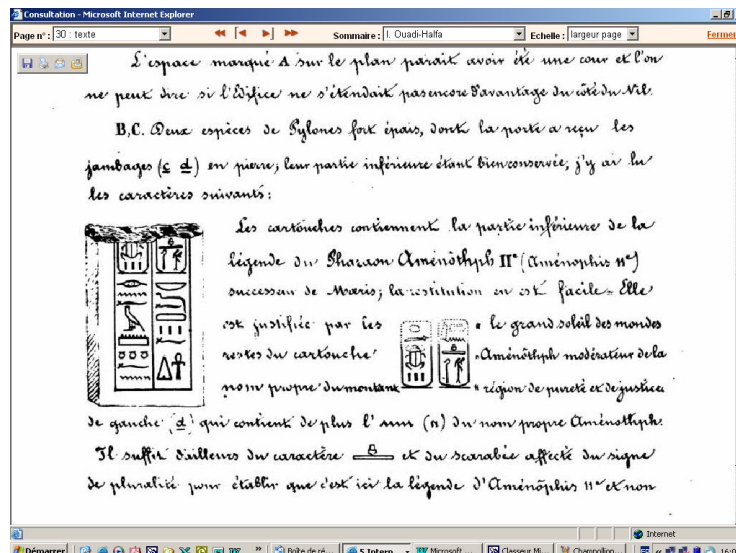 Consultation - Microsoft Internet Explorer
Page n° : 30 : texte Sommaire : I. Ouadi-Halfa Echelle : largeur page Fermer
L'espace marqué A sur le plan parait avoir été une cour et l'on
ne peut dire si l'Édifice ne s'étendait pas encore d'avantage du côté du Nil.
B, C. Deux espèces de Pylones fort épais, dont la porte a reçu les
jambages (c d) en pierre; leur partie inférieure étant bien conservée, j'y ai lu
les caractères suivants :
Les cartouches contiennent la partie inférieure de la
légende du Pharaon Aménôthph II^e (Aménophis II^e)
successeur de Mœris; la restitution en est facile. Elle
est justifiée par les
restes du cartouche
nom propre du montant
« le grand soleil des mondes
« Aménôthph modérateur de la
« région de pureté et de justice
de gauche (d) qui contient de plus l' (n) du nom propre Aménothph.
Il suffit d'ailleurs du caractère et du scarabée affecté du signe
de pluralité pour établir que c'est ici la légende d'Aménôphis II^e et non
Internet
Démarrer Boîte de ré... 5 Intern... Microsoft ... Classeur Mi... Champollion...